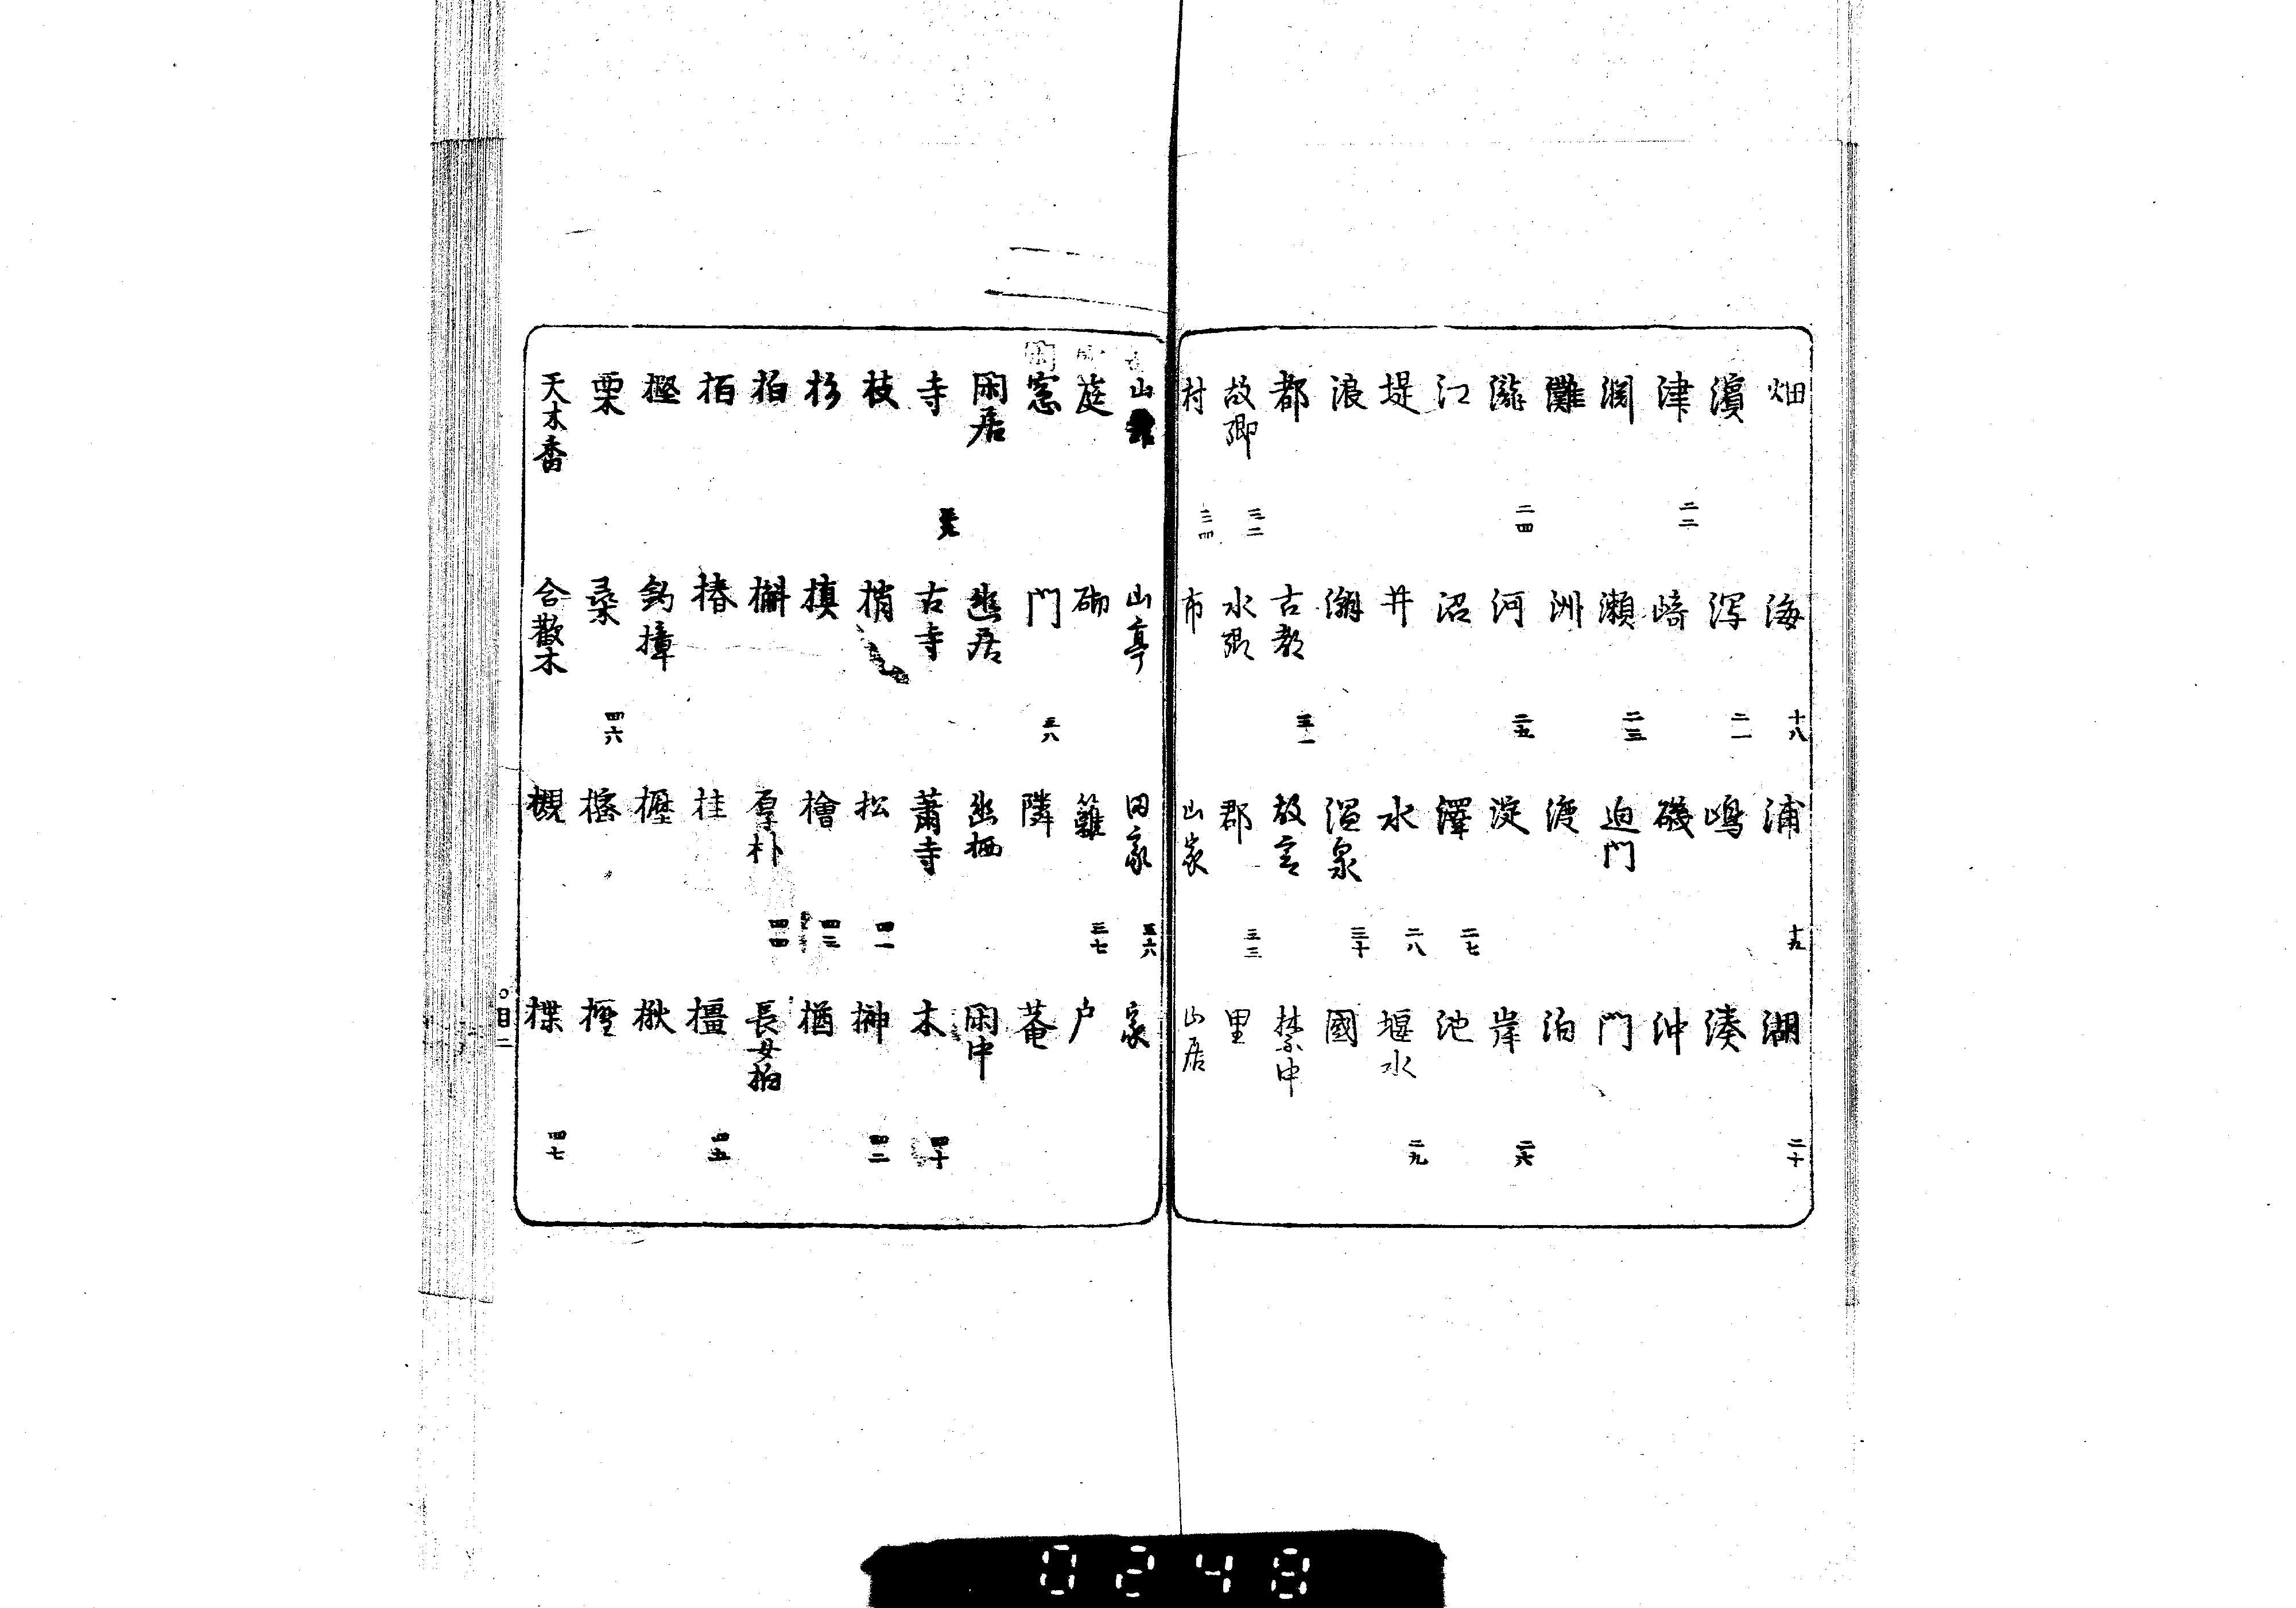 畑 海 十八 浦 十九 湖 二十
濱 泻 二一 嶋 湊
津 二二 崎 磯 沖
渕 瀬 二三 迫門 門
灘 洲 渡 泊
瀧 二四 河 二五 淀 岸 二六
江 沼 澤 二七 池
堤 井 水 二八 堰水 二九
浪 温泉 三十 國
都 古都 三一 故宮 禁中
故郷 三二 水郷 郡 三三 里
村 三四 市 山家 山居
山 山亭 田家 三六 家
庭 砌 籬 三七 戸
窓 門 三八 隣 菴
閑居 幽居 幽栖 閑中
寺 古寺 蕭寺 木 四十
枝 梢 松 四一 榊 四二
杉 槙 檜 四三 楢
柏 槲 厚朴 四四 長女柏
栢 椿 桂 橿 四五
樫 釣樟 櫪 楸
栗 桑 四六
天木香 合歡木 櫬 楪 四七
○目二
0248